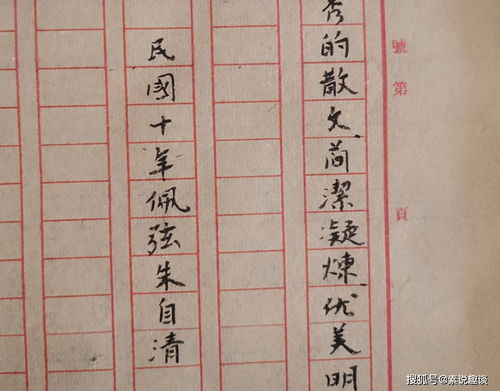 號第 頁
秀的散文简潔凝煉优美明
民國十年佩弦朱自清
搜狐号@素说趣谈